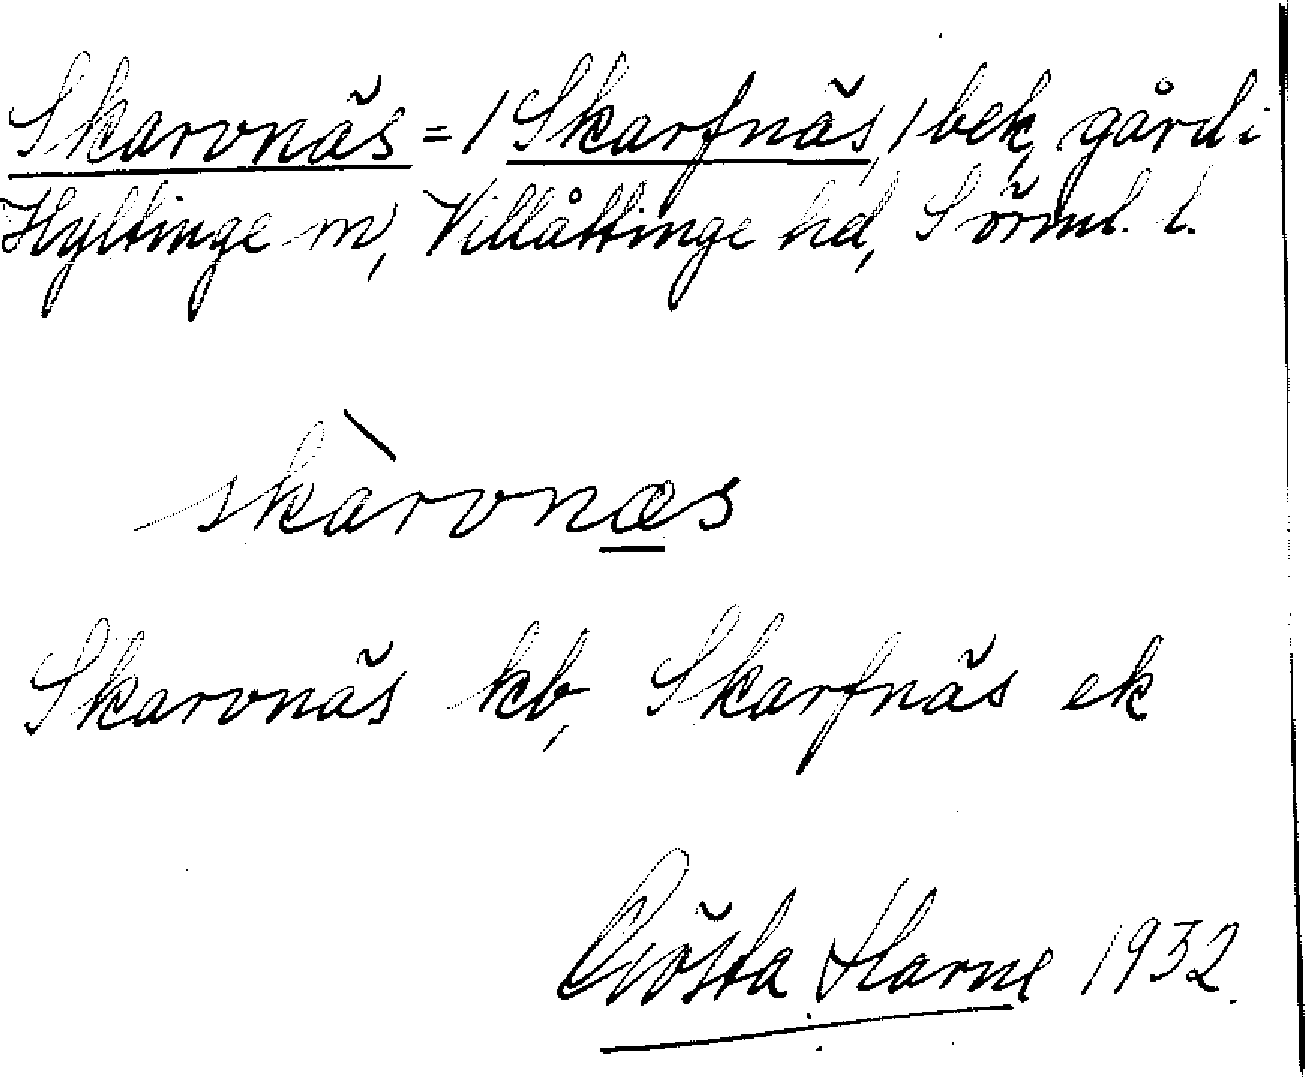 Skarvnäs = / Skarfnäs, / bek, gård i
Hyltinge sn, Villåttinge hd, Sörml. l.
skàrvnæs
Skarvnäs kb, Skarfnäs ek
Gösta Harne 1932.